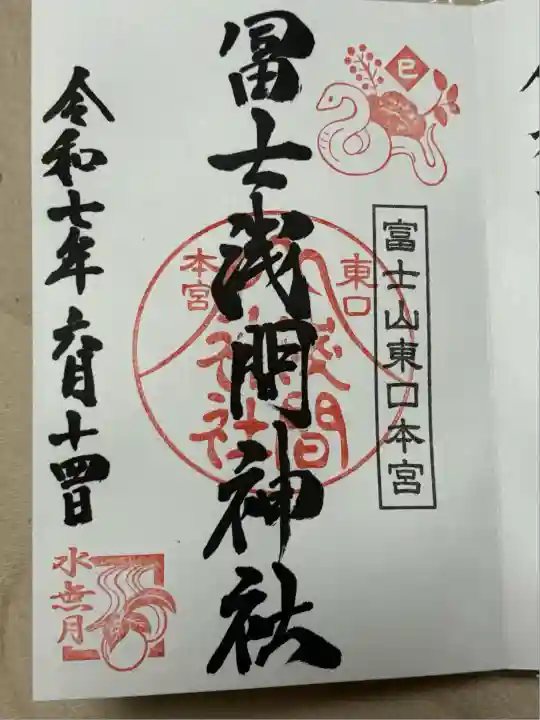 巳
富士山東口本宮
冨士浅間神社
東口
本宮
浅間
神社
令和七年六月十四日
水無月